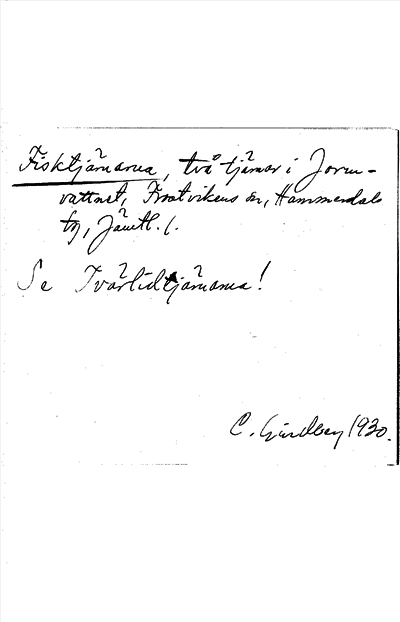 Fisktjärnarna, två tjärnar i Jorm-
vattnet, Frostvikens sn, Hammerdals
tg, Jämtl. l.
Se Tvärlidtjärnarna!
C. Lindberg 1930.